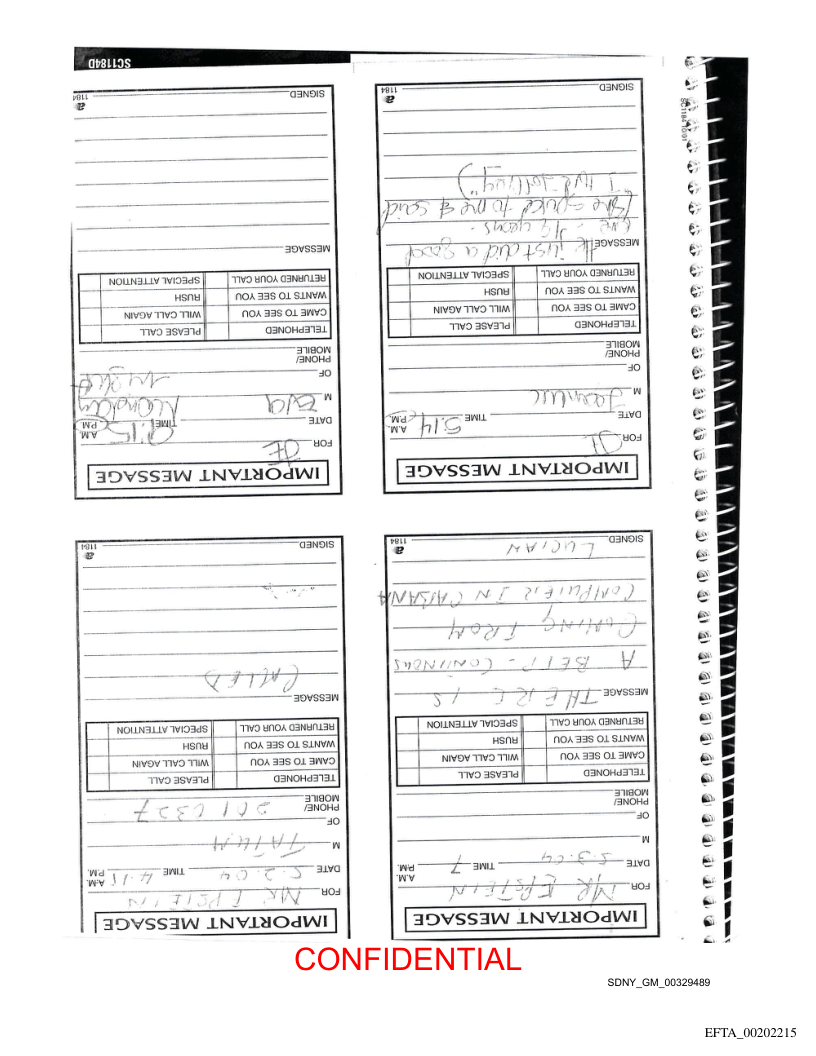 IMPORTANT MESSAGE
FOR MR EPSTEIN
DATE 5.3.04 TIME 7 A.M. P.M.
M
OF
PHONE/
MOBILE
TELEPHONED PLEASE CALL
CAME TO SEE YOU WILL CALL AGAIN
WANTS TO SEE YOU RUSH
RETURNED YOUR CALL SPECIAL ATTENTION
MESSAGE THERE IS
A BEIP - CONTINOUS
COMING FROM
COMPUTER IN CABANA
SIGNED LUCIAN 1184
IMPORTANT MESSAGE
FOR MR EPSTEIN
DATE 5.2.04 TIME 4.15 A.M. P.M.
M TATUM
OF
PHONE/
MOBILE 201 6327
TELEPHONED PLEASE CALL
CAME TO SEE YOU WILL CALL AGAIN
WANTS TO SEE YOU RUSH
RETURNED YOUR CALL SPECIAL ATTENTION
MESSAGE
CALLED
SIGNED 1184
IMPORTANT MESSAGE
FOR JE
DATE TIME 5.14 A.M. P.M.
M
OF
PHONE/
MOBILE
TELEPHONED PLEASE CALL
CAME TO SEE YOU WILL CALL AGAIN
WANTS TO SEE YOU RUSH
RETURNED YOUR CALL SPECIAL ATTENTION
MESSAGE He just did a good
one - 18 years -
(She spoke to me & said
"I love Jeffrey")
SIGNED 1184
IMPORTANT MESSAGE
FOR JE
DATE TIME 9.15 A.M. P.M.
M Eva
OF
PHONE/
MOBILE
TELEPHONED PLEASE CALL
CAME TO SEE YOU WILL CALL AGAIN
WANTS TO SEE YOU RUSH
RETURNED YOUR CALL SPECIAL ATTENTION
MESSAGE
SIGNED 1184
SC1184D
CONFIDENTIAL
SDNY_GM_00329489
EFTA_00202215